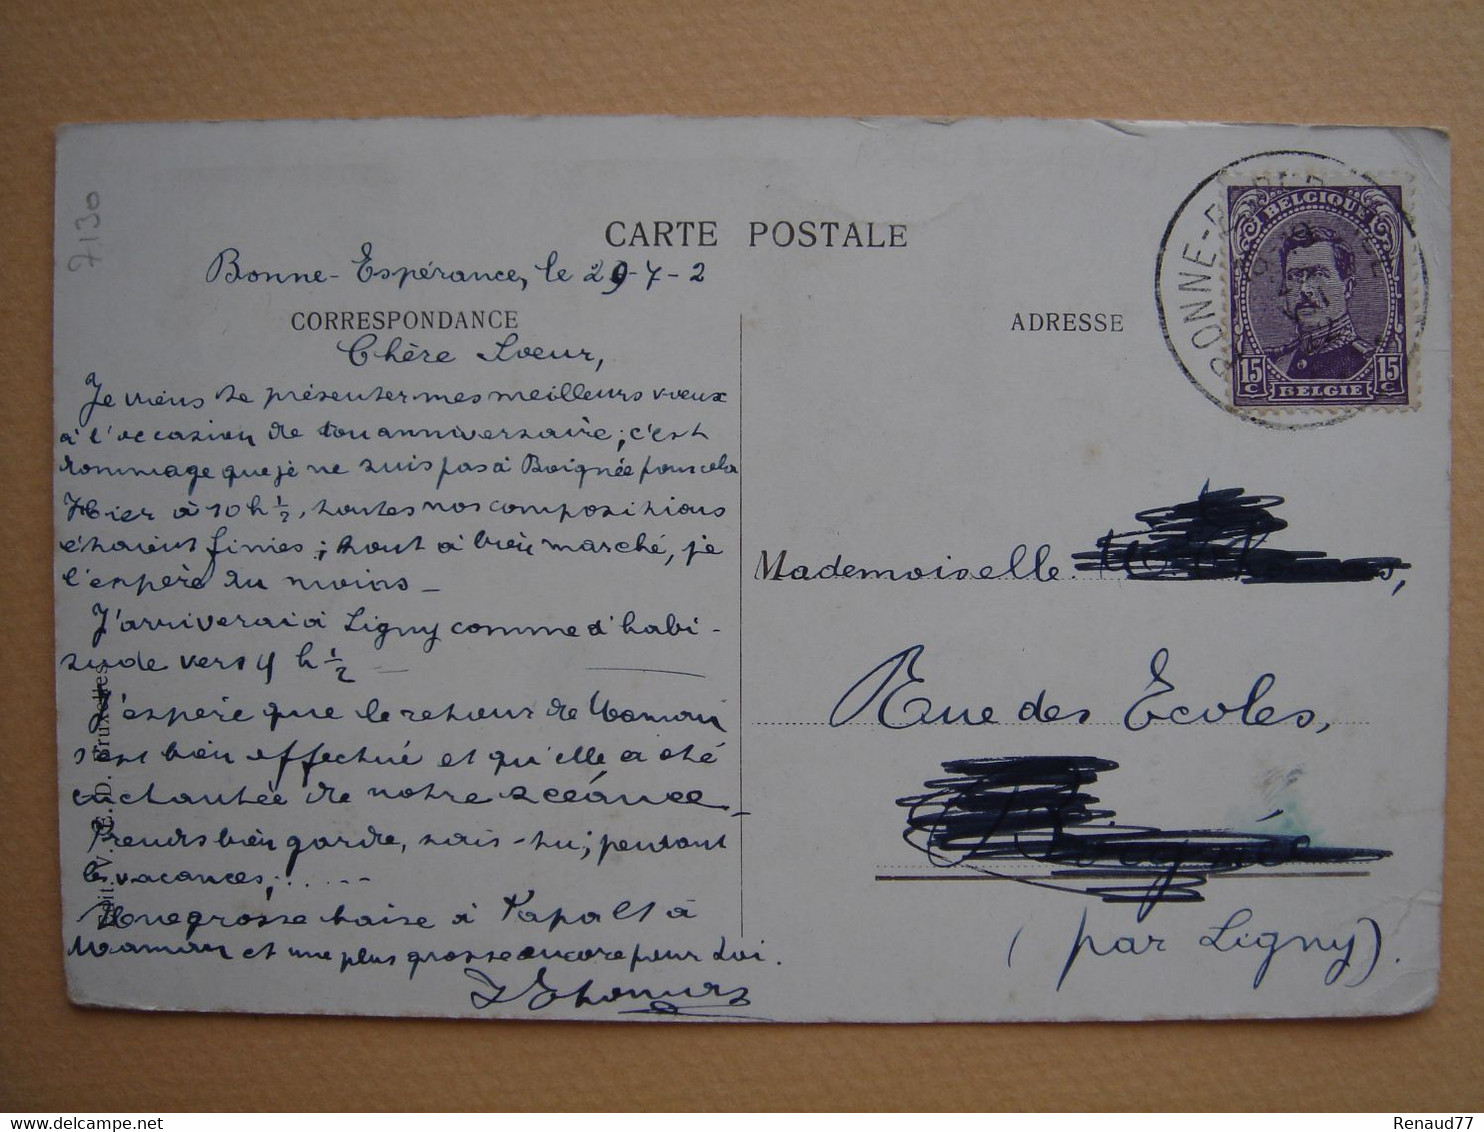 7130
CARTE POSTALE
Bonne-Espérance, le 29-7-2
CORRESPONDANCE
Chère Soeur,
Je viens te présenter mes meilleurs voeux
à l'occasion de ton anniversaire; c'est
dommage que je ne suis pas à Boignée pour cela
Hier à 10 h ½, toutes nos compositions
étaient finies; tout a bien marché, je
l'espère du moins_
J'arriverai à Ligny comme d'habi-
tude vers 4 h ½ —
J'espère que le retour de Maman
s'est bien effectué et qu'elle a été
enchantée de notre scéance_
Prends bien garde, sais-tu; pendant
les vacances; . . . . . - -
Une grosse baise à Papa et à
Maman et une plus grosse encore pour toi.
Edit. V. E. D. Bruxelles
ADRESSE
BONNE-E
BELGIQUE
15 C 15 C
BELGIE
Mademoiselle
Rue des Ecoles,
Boignée
(par Ligny).
Renaud77
delcampe.net